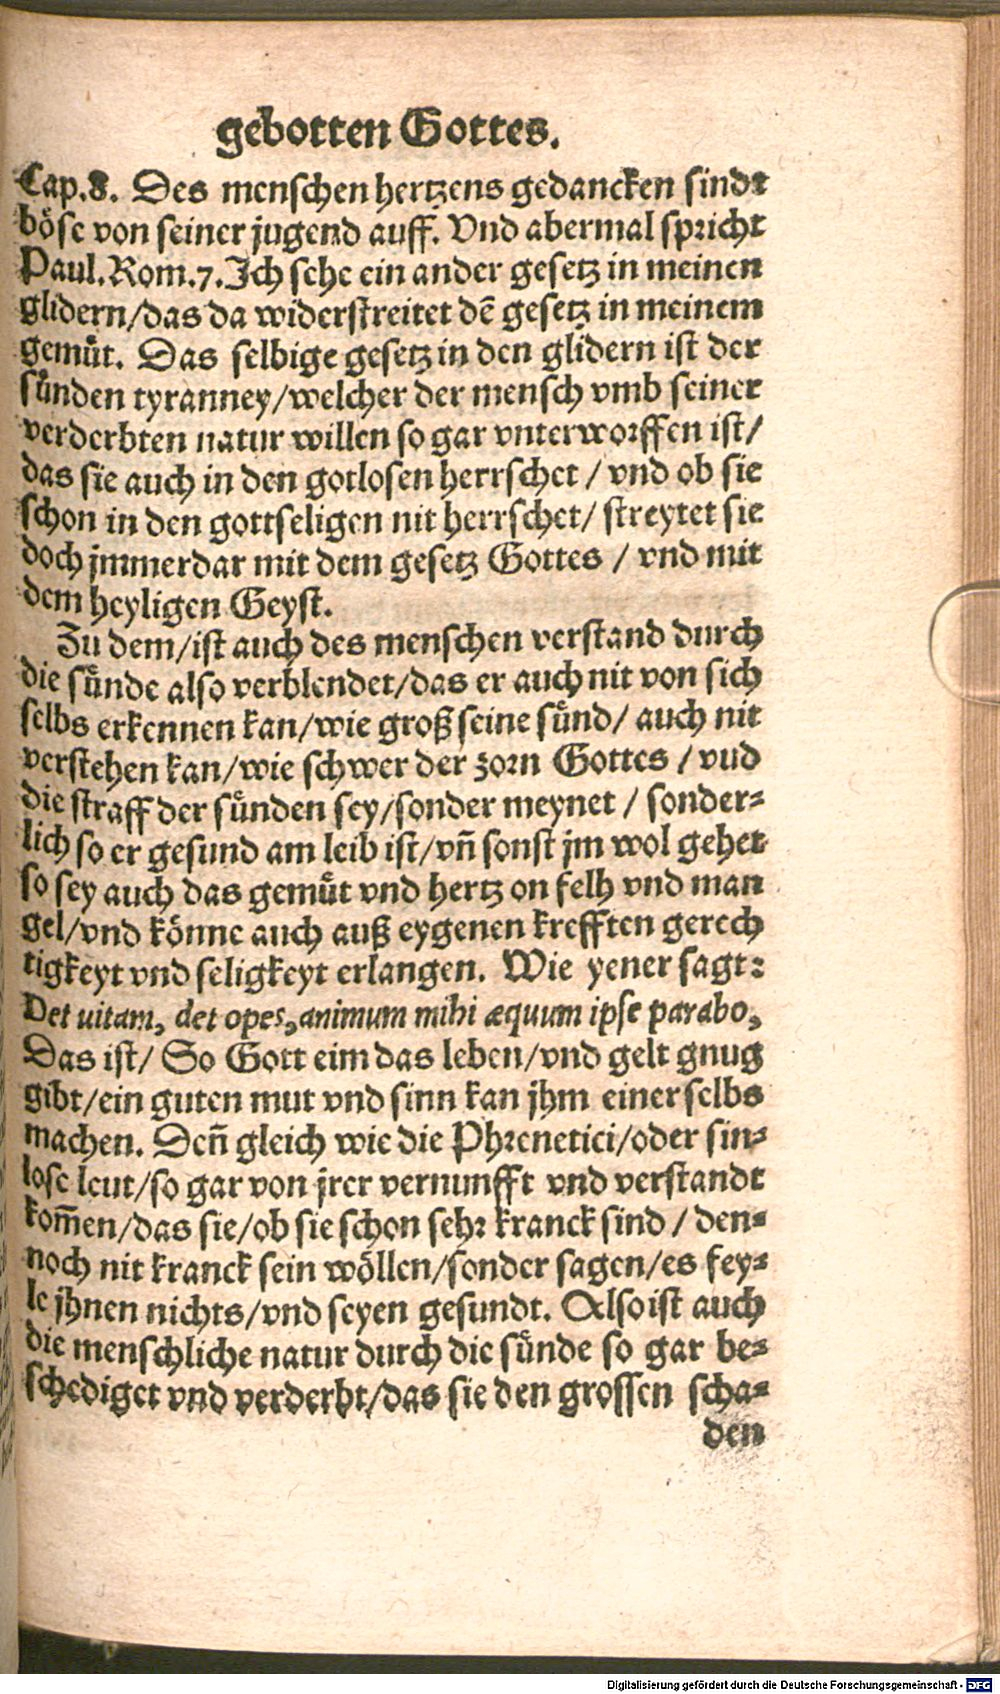 gebotten Gottes.
Cap.8. Des menschen hertzens gedancken sindt
böse von seiner jugend auff. Vnd abermal spricht
Paul. Rom.7. Ich sehe ein ander gesetz in meinen
glidern/das da widerstreitet dē gesetz in meinem
gemuͤt. Das selbige gesetz in den glidern ist der
suͤnden tyranney/welcher der mensch vmb seiner
verderbten natur willen so gar vnterworffen ist/
das sie auch in den gotlosen herrschet / vnd ob sie
schon in den gottseligen nit herrschet/ streytet sie
doch jmmerdar mit dem gesetz Gottes / vnd mit
dem heyligen Geyst.
Zu dem/ist auch des menschen verstand durch
die suͤnde also verblendet/das er auch nit von sich
selbs erkennen kan/wie groß seine suͤnd/ auch nit
verstehen kan/wie schwer der zorn Gottes / vud
die straff der suͤnden sey/sonder meynet / sonder-
lich so er gesund am leib ist/vñ sonst jm wol gehet
so sey auch das gemuͤt vnd hertz on felh vnd man
gel/vnd könne auch auß eygenen krefften gerech
tigkeyt vnd seligkeyt erlangen. Wie yener sagt:
Det uitam, det opes, animum mihi æquum ipse parabo,
Das ist/ So Gott eim das leben/vnd gelt gnug
gibt/ein guten mut vnd sinn kan jhm einer selbs
machen. Deñ gleich wie die Phrenetici/oder sin-
lose leut/so gar von jrer vernunfft vnd verstandt
kom̄en/das sie/ob sie schon sehr kranck sind / den-
noch nit kranck sein wöllen/sonder sagen/es fey-
le jhnen nichts/vnd seyen gesundt. Also ist auch
die menschliche natur durch die suͤnde so gar be-
schediget vnd verderbt/das sie den grossen scha-
den
Digitalisierung gefördert durch die Deutsche Forschungsgemeinschaft - DFG